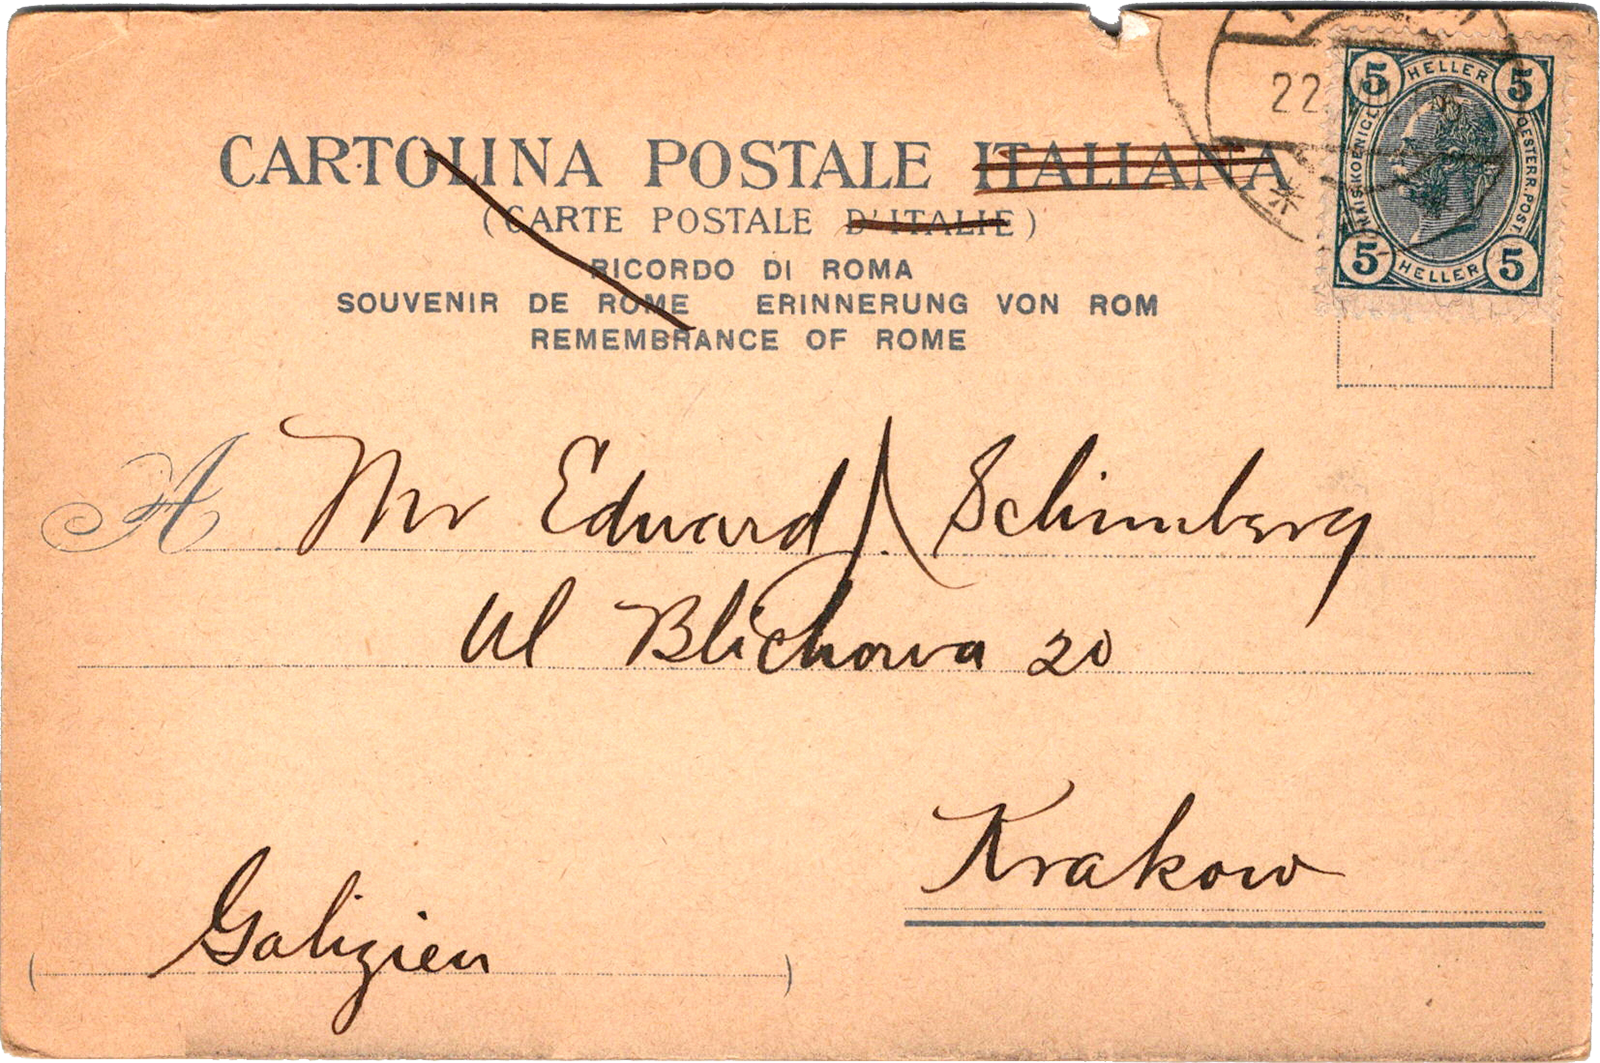 CARTOLINA POSTALE ITALIANA
(CARTE POSTALE D'ITALIE)
RICORDO DI ROMA
SOUVENIR DE ROME ERINNERUNG VON ROM
REMEMBRANCE OF ROME
5 HELLER 5
KAIS.KOENIGL. OESTERR.POST.
5 HELLER 5
22
A Mr Eduard Schimberg
Ul Blichowa 20
Krakow
Galizien